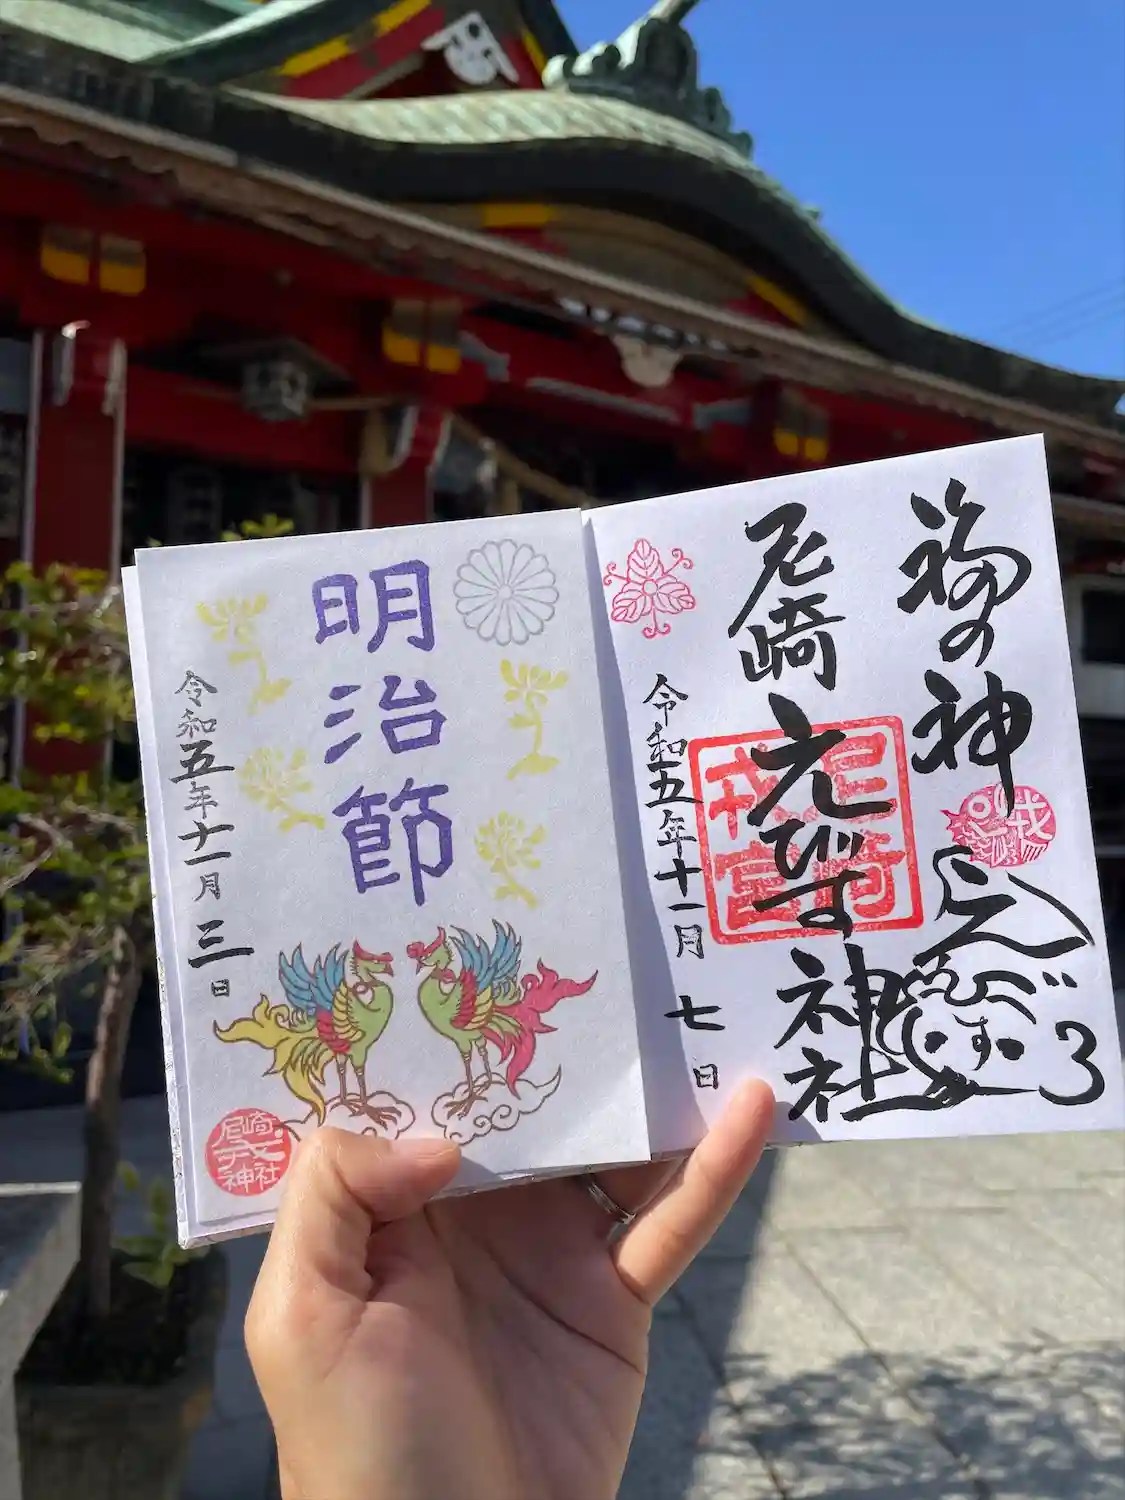 福の神
尼崎えびす神社
尼崎
戎宮
戎
えびす
令和五年十一月七日
明治節
令和五年十一月三日
尼崎
戎
神社